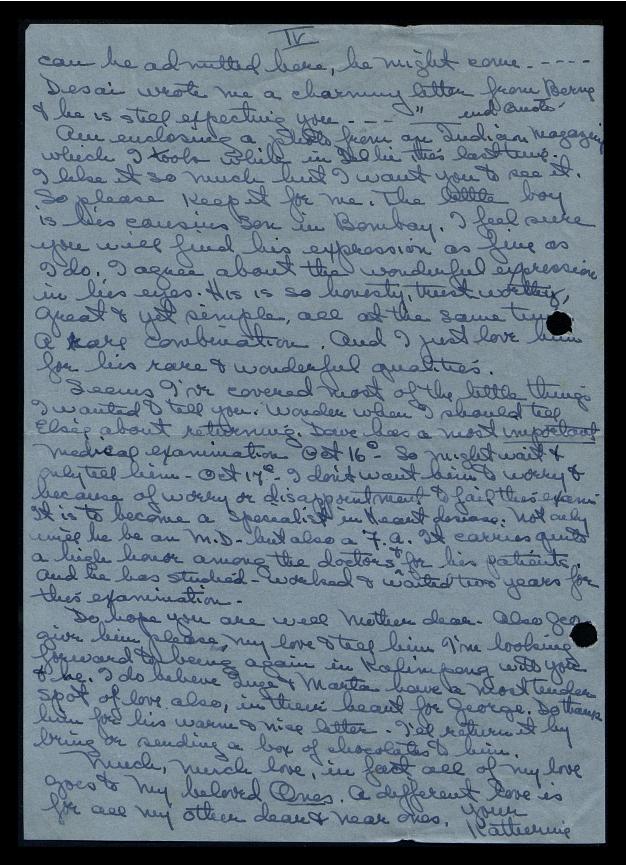 IV
can be admitted here, he might come. - - - - -
Desai wrote me a charming letter from Berne
& he is still effecting you - - - - "
Am enclosing a photo from an Indian magazine
which I took while in Delhi this last time.
I like it so much but I want you to see it.
So please keep it for me. The little boy
is his cousins son in Bombay. I feel sure
you will find his expression as fine as
I do. I agree about the wonderful expression
in his eyes. His is so honesty, trustworthy,
great & yet simple, all at the same time
a rare combination. And I just love him
for his rare & wonderful qualities.
Seems I've covered most of the little things
I wanted to tell you. Wonder when I should tell
Else about returning. Dave has a most important
medical examination Oct 16º. So might wait &
only tell him - Oct 17º - I don't want him to worry &
because of worry or disappointment to fail this exam
It is to become a specialist in heart disease. Not only
will he be an M.D. - but also a F.A. It carries quite
a high honor among the doctors & for his patients.
And he has studied - worked & waited two years for
this examination -
Do hope you are well Mother dear. Also Geo
give him please, my love & tell him I'm looking
forward to being again in Kalimpong with you
& he. I do believe Inge & Marta have a most tender
spot of love also, in their heart for George. Do thank
him for his warm & nice letter. I'll return it by
bring or sending a box of chocolates to him.
Much, much love, in fact all of my love
goes to my beloved Ones. A different love is
for all my other dear & near ones. Your
Katherine